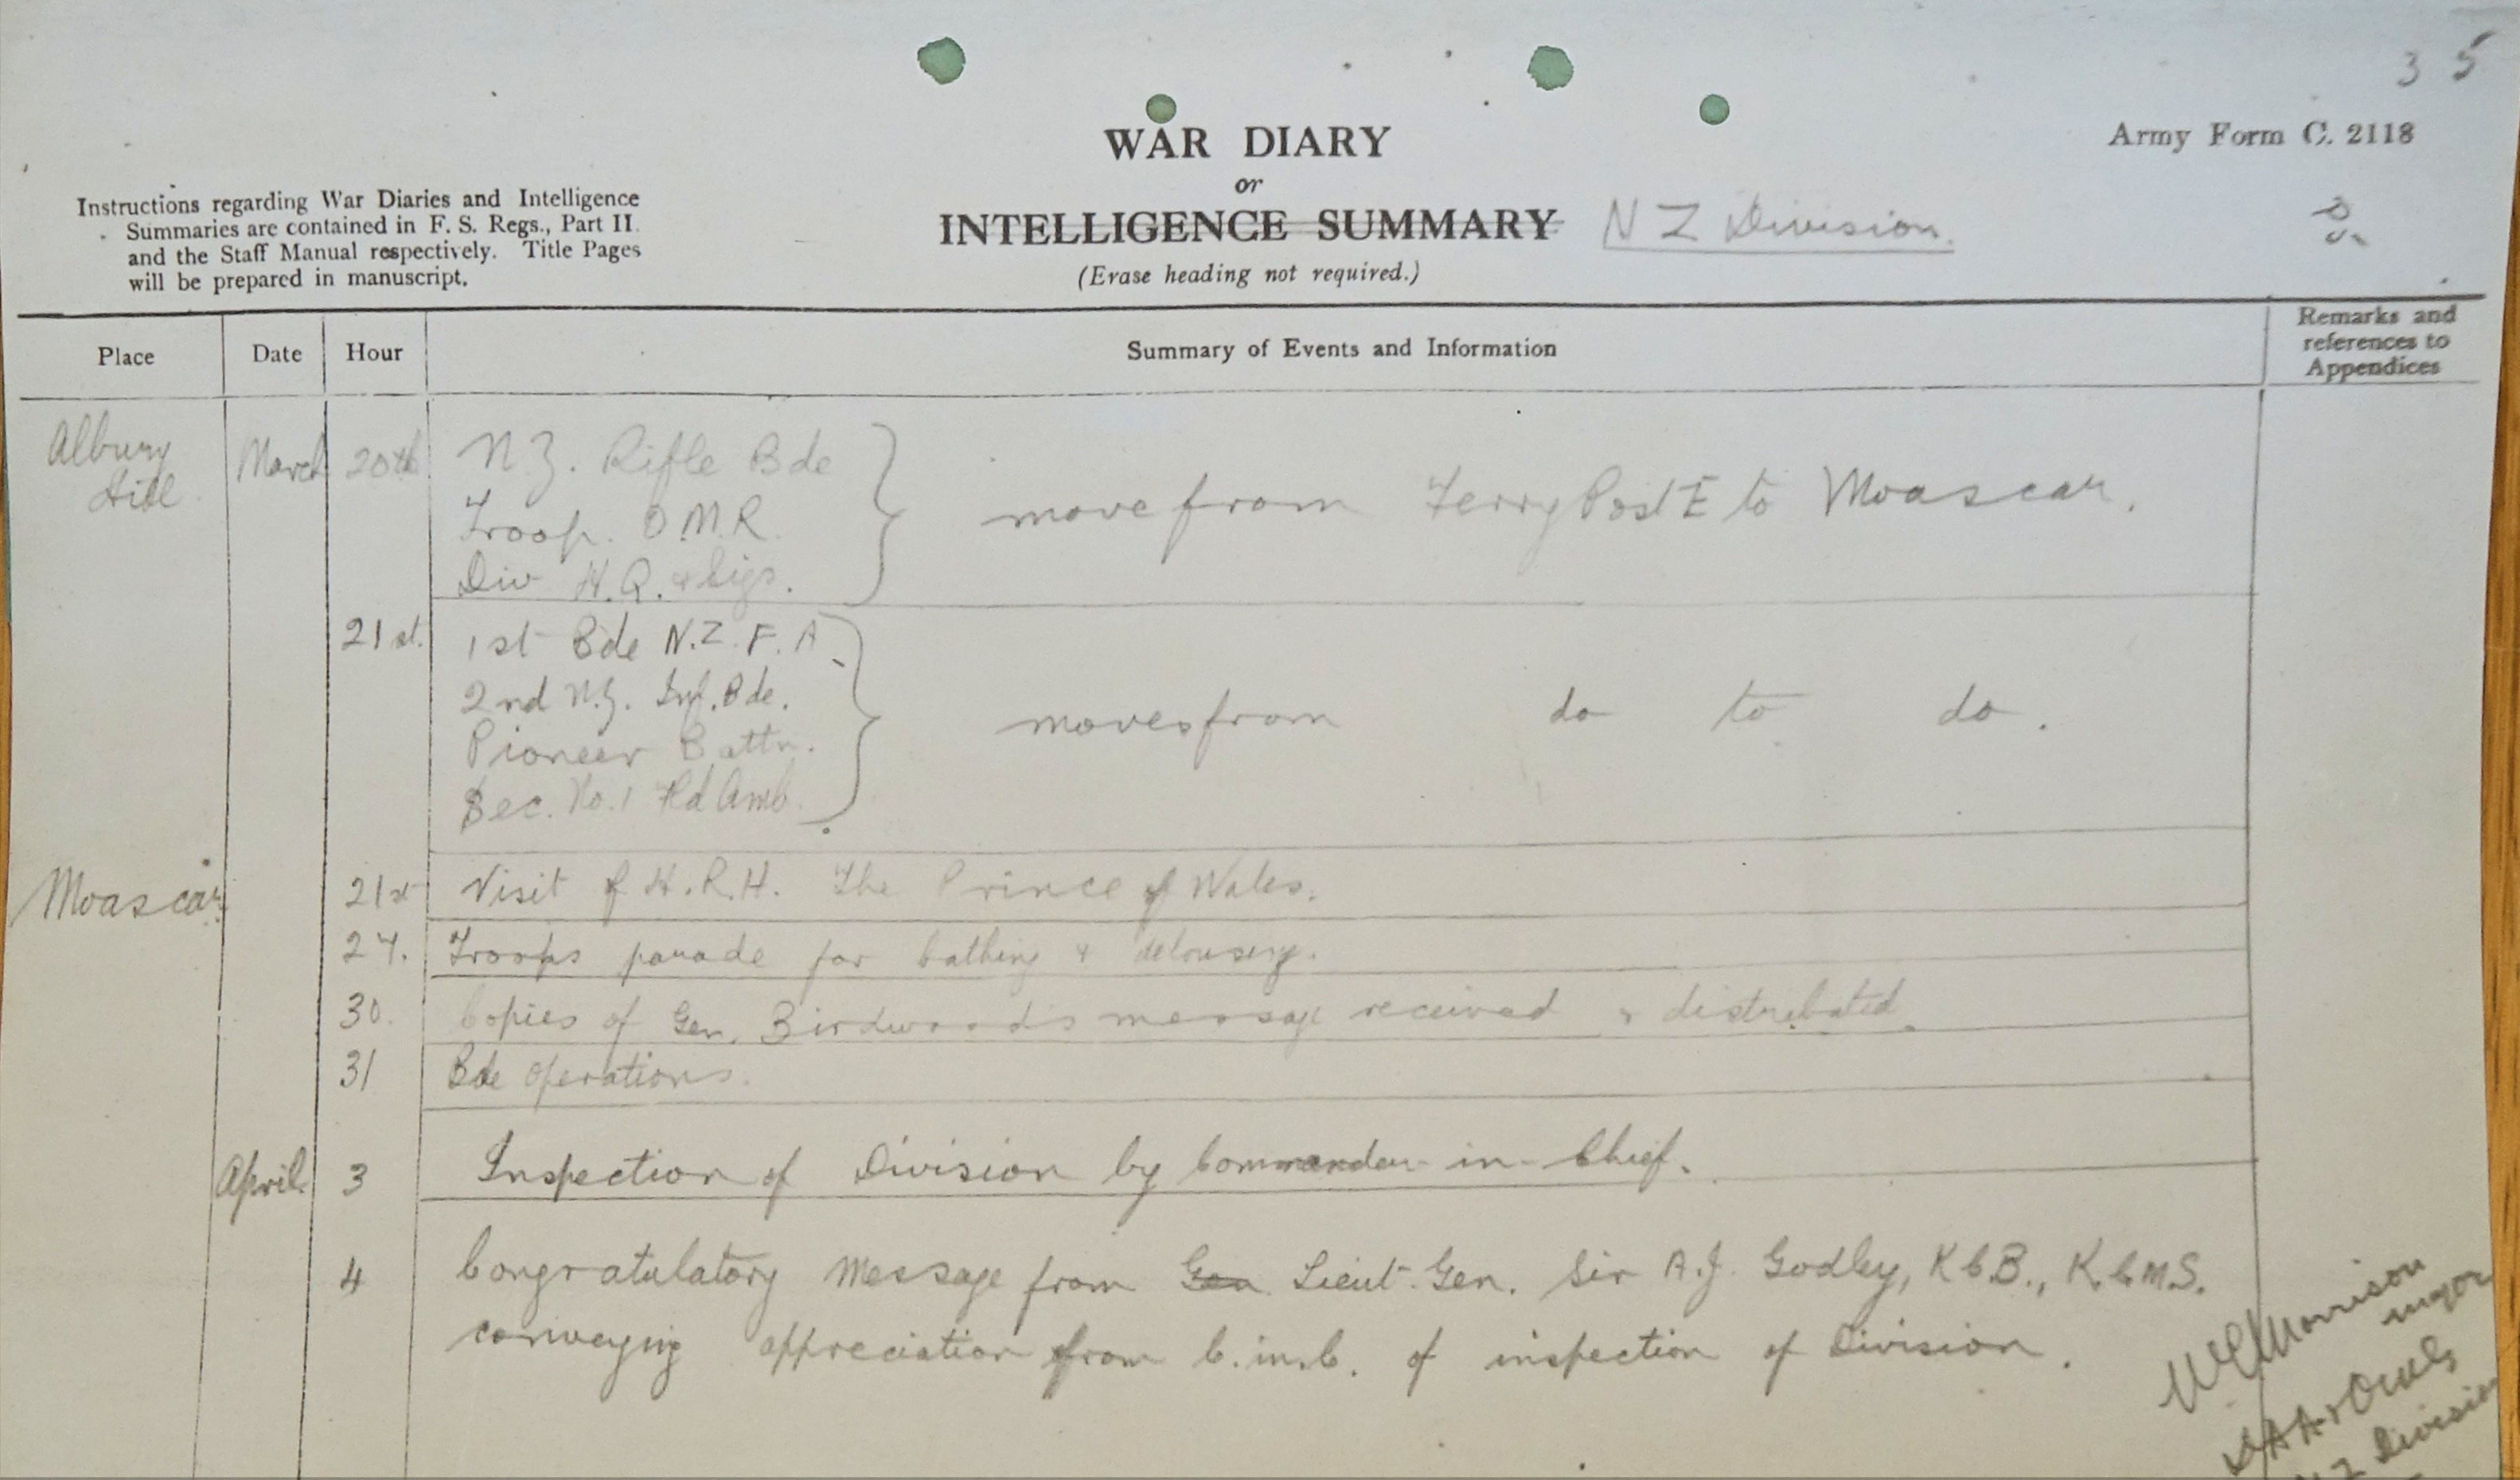 3 5
WAR DIARY
Army Form C. 2118
or
Instructions regarding War Diaries and Intelligence
Summaries are contained in F. S. Regs., Part II.
and the Staff Manual respectively. Title Pages
will be prepared in manuscript.
INTELLIGENCE SUMMARY N Z Division.
(Erase heading not required.)
Place Date Hour Summary of Events and Information Remarks and
references to
Appendices
Albury March 20th N.Z. Rifle Bde
Hill
Troop. O.M.R. move from Ferry Post E to Moascar.
Div H.Q. & Sigs.
21st. 1st Bde N.Z.F.A.
2nd N.Z. Inf. Bde. moves from do to do.
Pioneer Battn.
Sec. No. 1 Fld Amb.
Moascar 21st Visit of H.R.H. The Prince of Wales.
27. Troops parade for bathing & delousing.
30. Copies of Gen. Birdwood's message received & distributed.
31 Bde operations.
April 3 Inspection of Division by Commander-in-Chief.
4 Congratulatory Message from Gen Lieut. Gen. Sir A.J. Godley, K.C.B., K.C.M.S.
conveying appreciation from C.in.C. of inspection of Division.
Morrison
major
Z Division